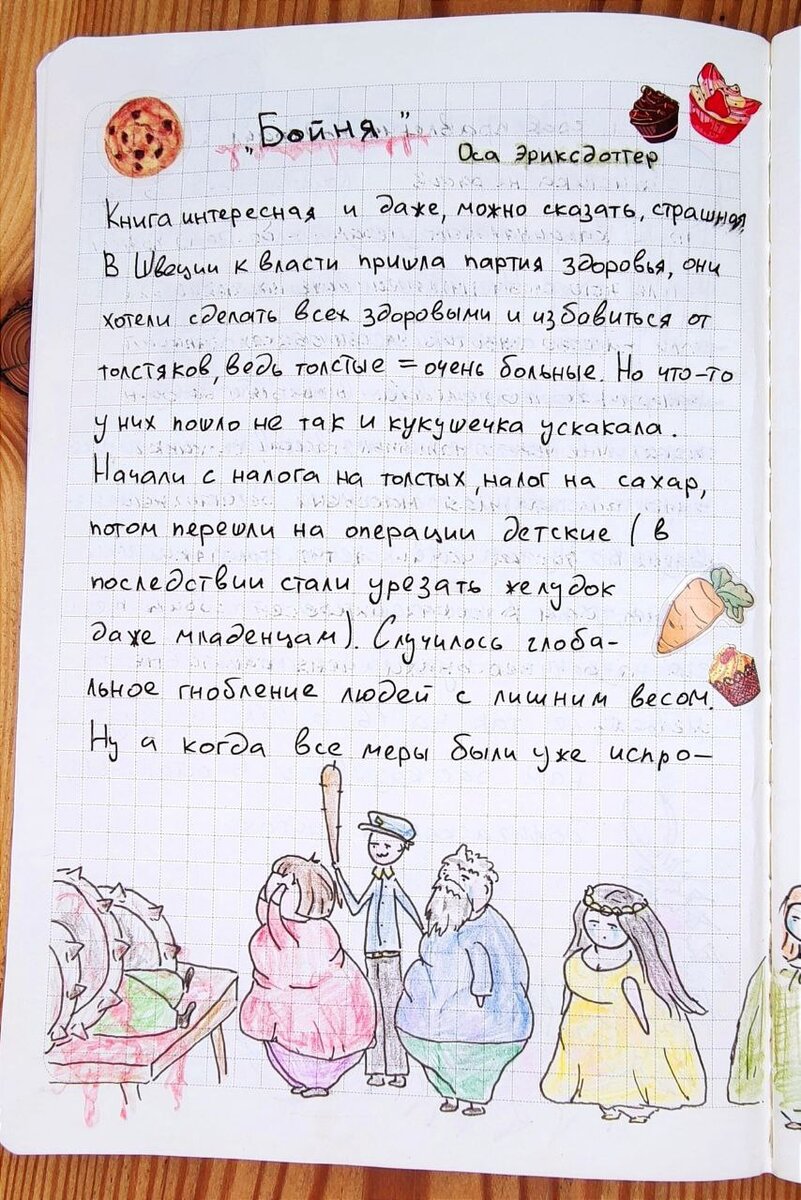 „Бойня"
Оса Эриксдоттер
Книга интересная и даже, можно сказать, страшная.
В Швеции к власти пришла партия здоровья, они
хотели сделать всех здоровыми и избавиться от
толстяков, ведь толстые = очень больные. Но что-то
у них пошло не так и кукушечка ускакала.
Начали с налога на толстых, налог на сахар,
потом перешли на операции детские (в
последствии стали урезать желудок
даже младенцам). Случилось глоба-
льное гнобление людей с лишним весом.
Ну а когда все меры были уже испро-